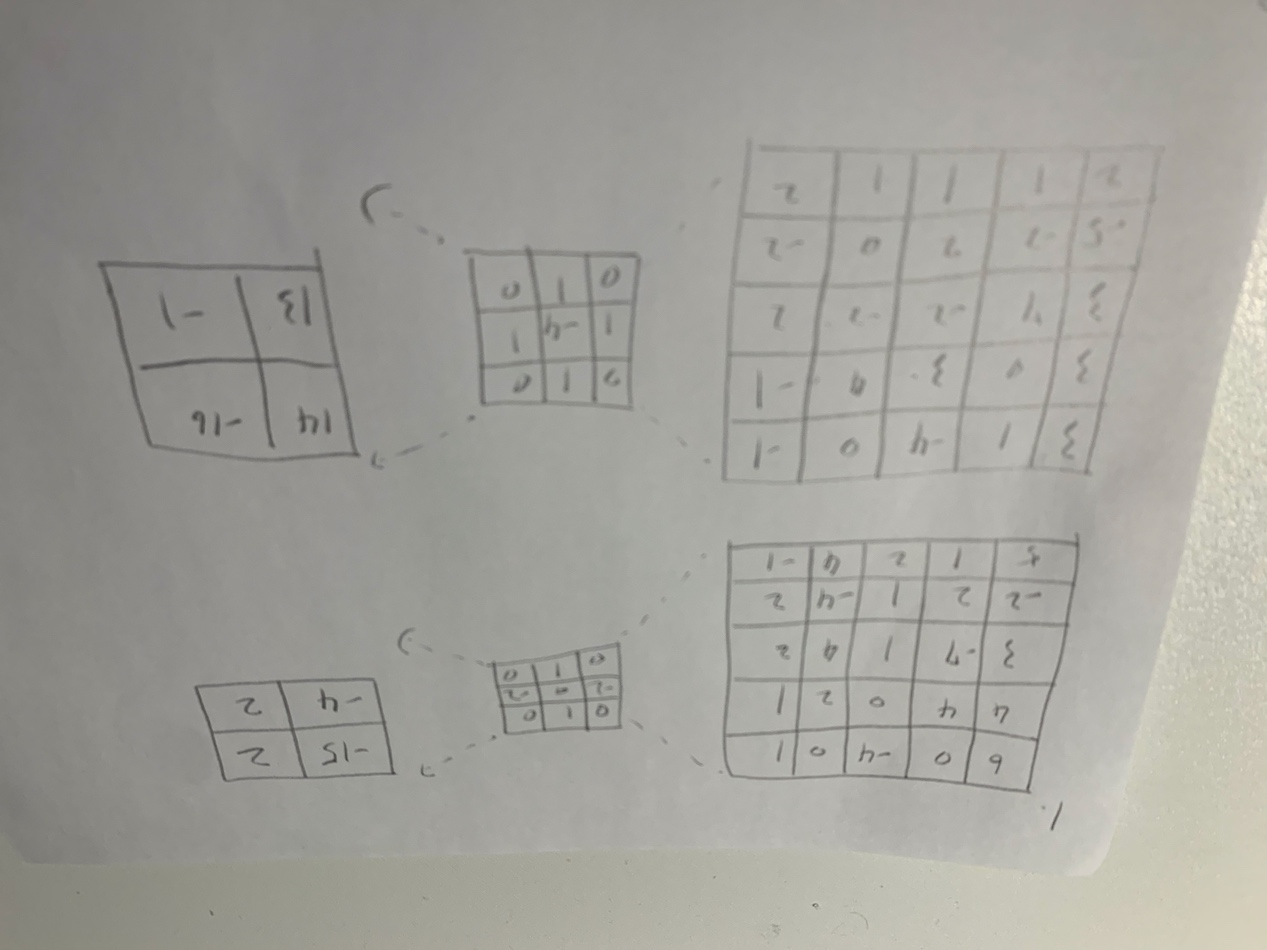 1.
6 0 -4 0 1
4 4 0 2 1
3 -7 1 4 2
-2 2 1 -4 2
5 1 2 4 -1
0 1 0
-2 0 -2
0 1 0
-15 2
-4 2
3 1 -4 0 -1
3 0 3 4 -1
3 7 -2 -2 2
-5 -2 2 0 -2
2 1 1 1 2
0 1 0
1 -4 1
0 1 0
14 -16
13 -1